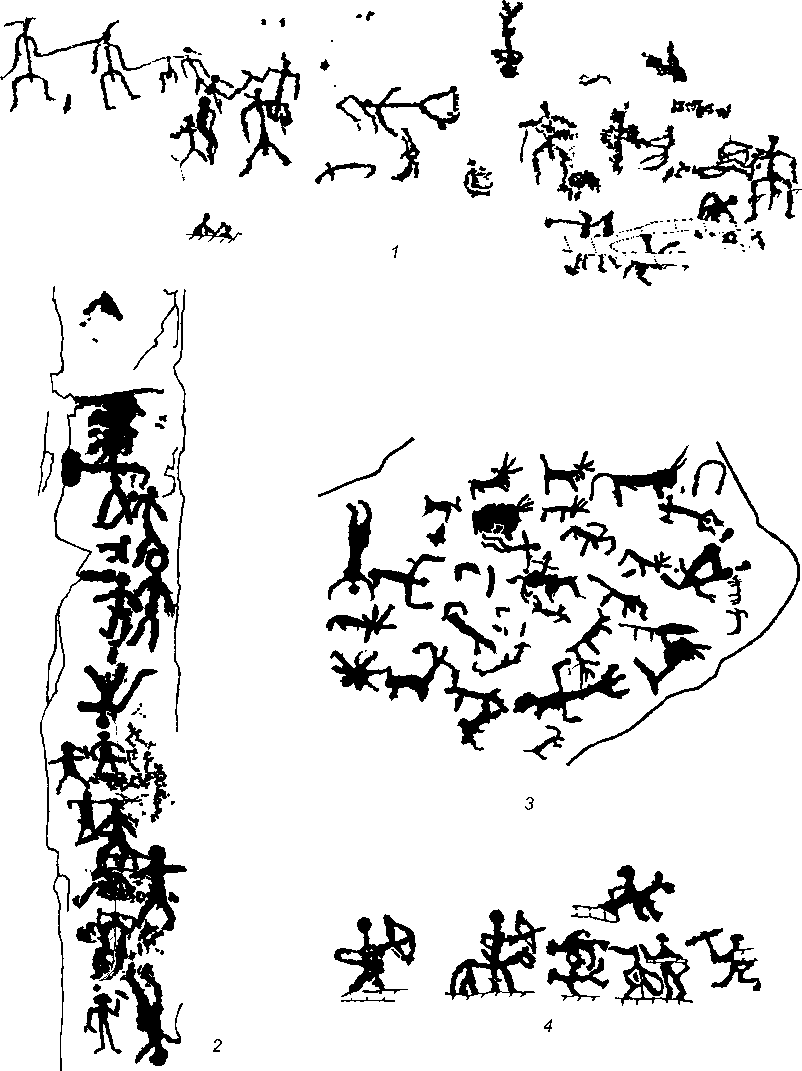 1
3
4
2